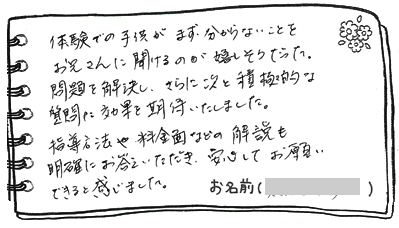 体験での子供がまず分からないことを
お兄さんに聞けるのが嬉しそうだった。
問題を解決し、さらに次と積極的な
質問に効果を期待いたしました。
指導方法や料金面などの解説も
明確にお答えいただき、安心してお願い
できると感じました。
お名前(　　　　　)